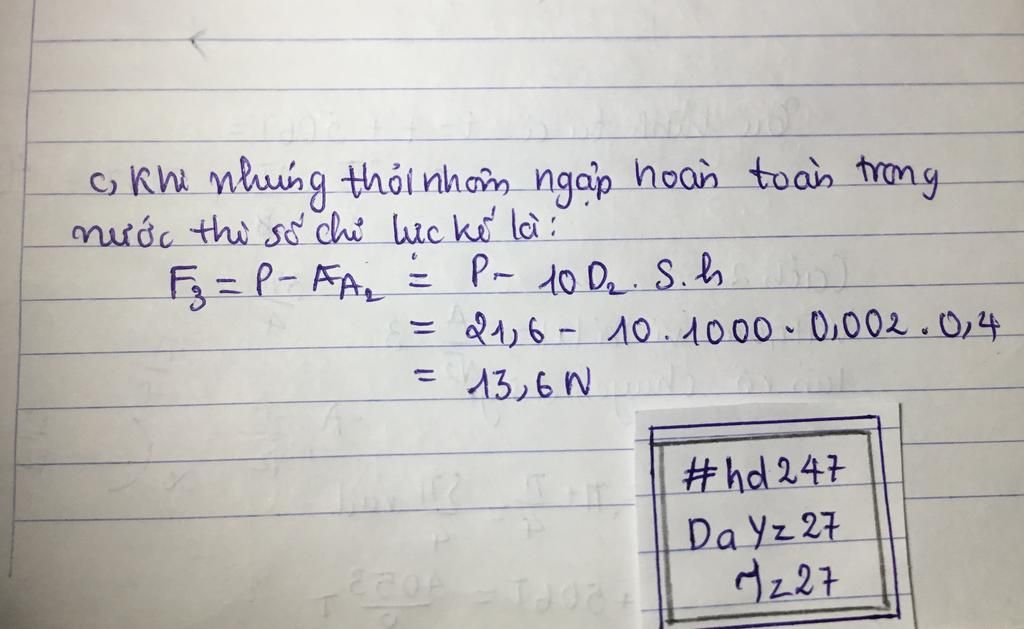 c, Khi nhúng thỏi nhôm ngập hoàn toàn trong
nước thì số chỉ lực kế là:
F₃ = P - F_A₂ = P - 10D₂. S.h
= 21,6 - 10.1000.0,002.0,4
= 13,6N
#hd247
DaYz27